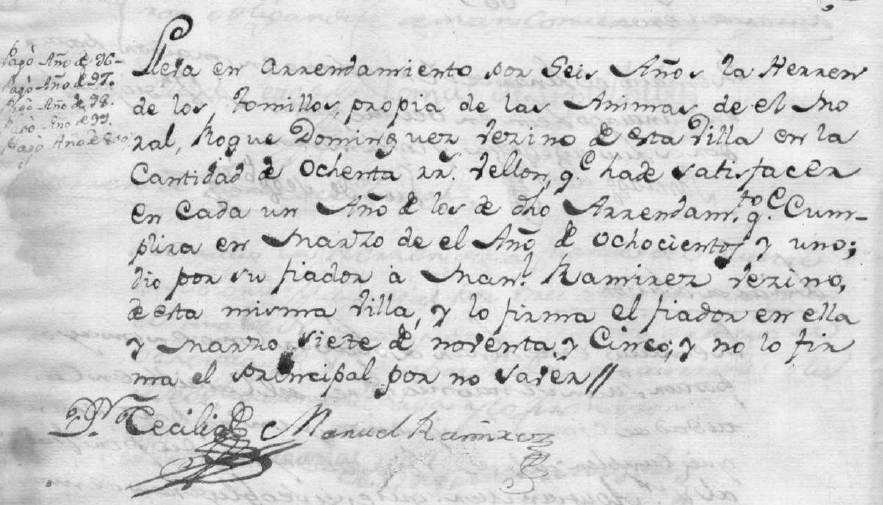 Pagò Año de 96-
Pagò Año de 97.
Pagò Año de 98.
Pagò Año de 99.
Pagò Año de 800
Lleva en arrendamiento por Seis Años la Herren
de los Tomillos, propia de las Animas de el Mo
ral, Roque Dominguez vezino de esta Villa en la
Cantidad de Ochenta rr.^s vellon, q.^e hade satisfacer
en Cada un Año de los de dho Arrendam.^to q.^e Cum-
plira en Marzo de el Año de Ochocientos y uno;
dio por su fiador à Man.^l Ramirez vezino,
de esta misma Villa, y lo firma el fiador en ella
y Marzo siete de noventa y Cinco, y no lo fir
ma el principal por no saver//
Cecilio
Manuel Ramirez